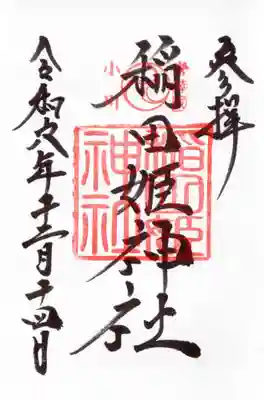 奉拝
稲田姫神社
令和六年十二月十四日
稲田姫
神社